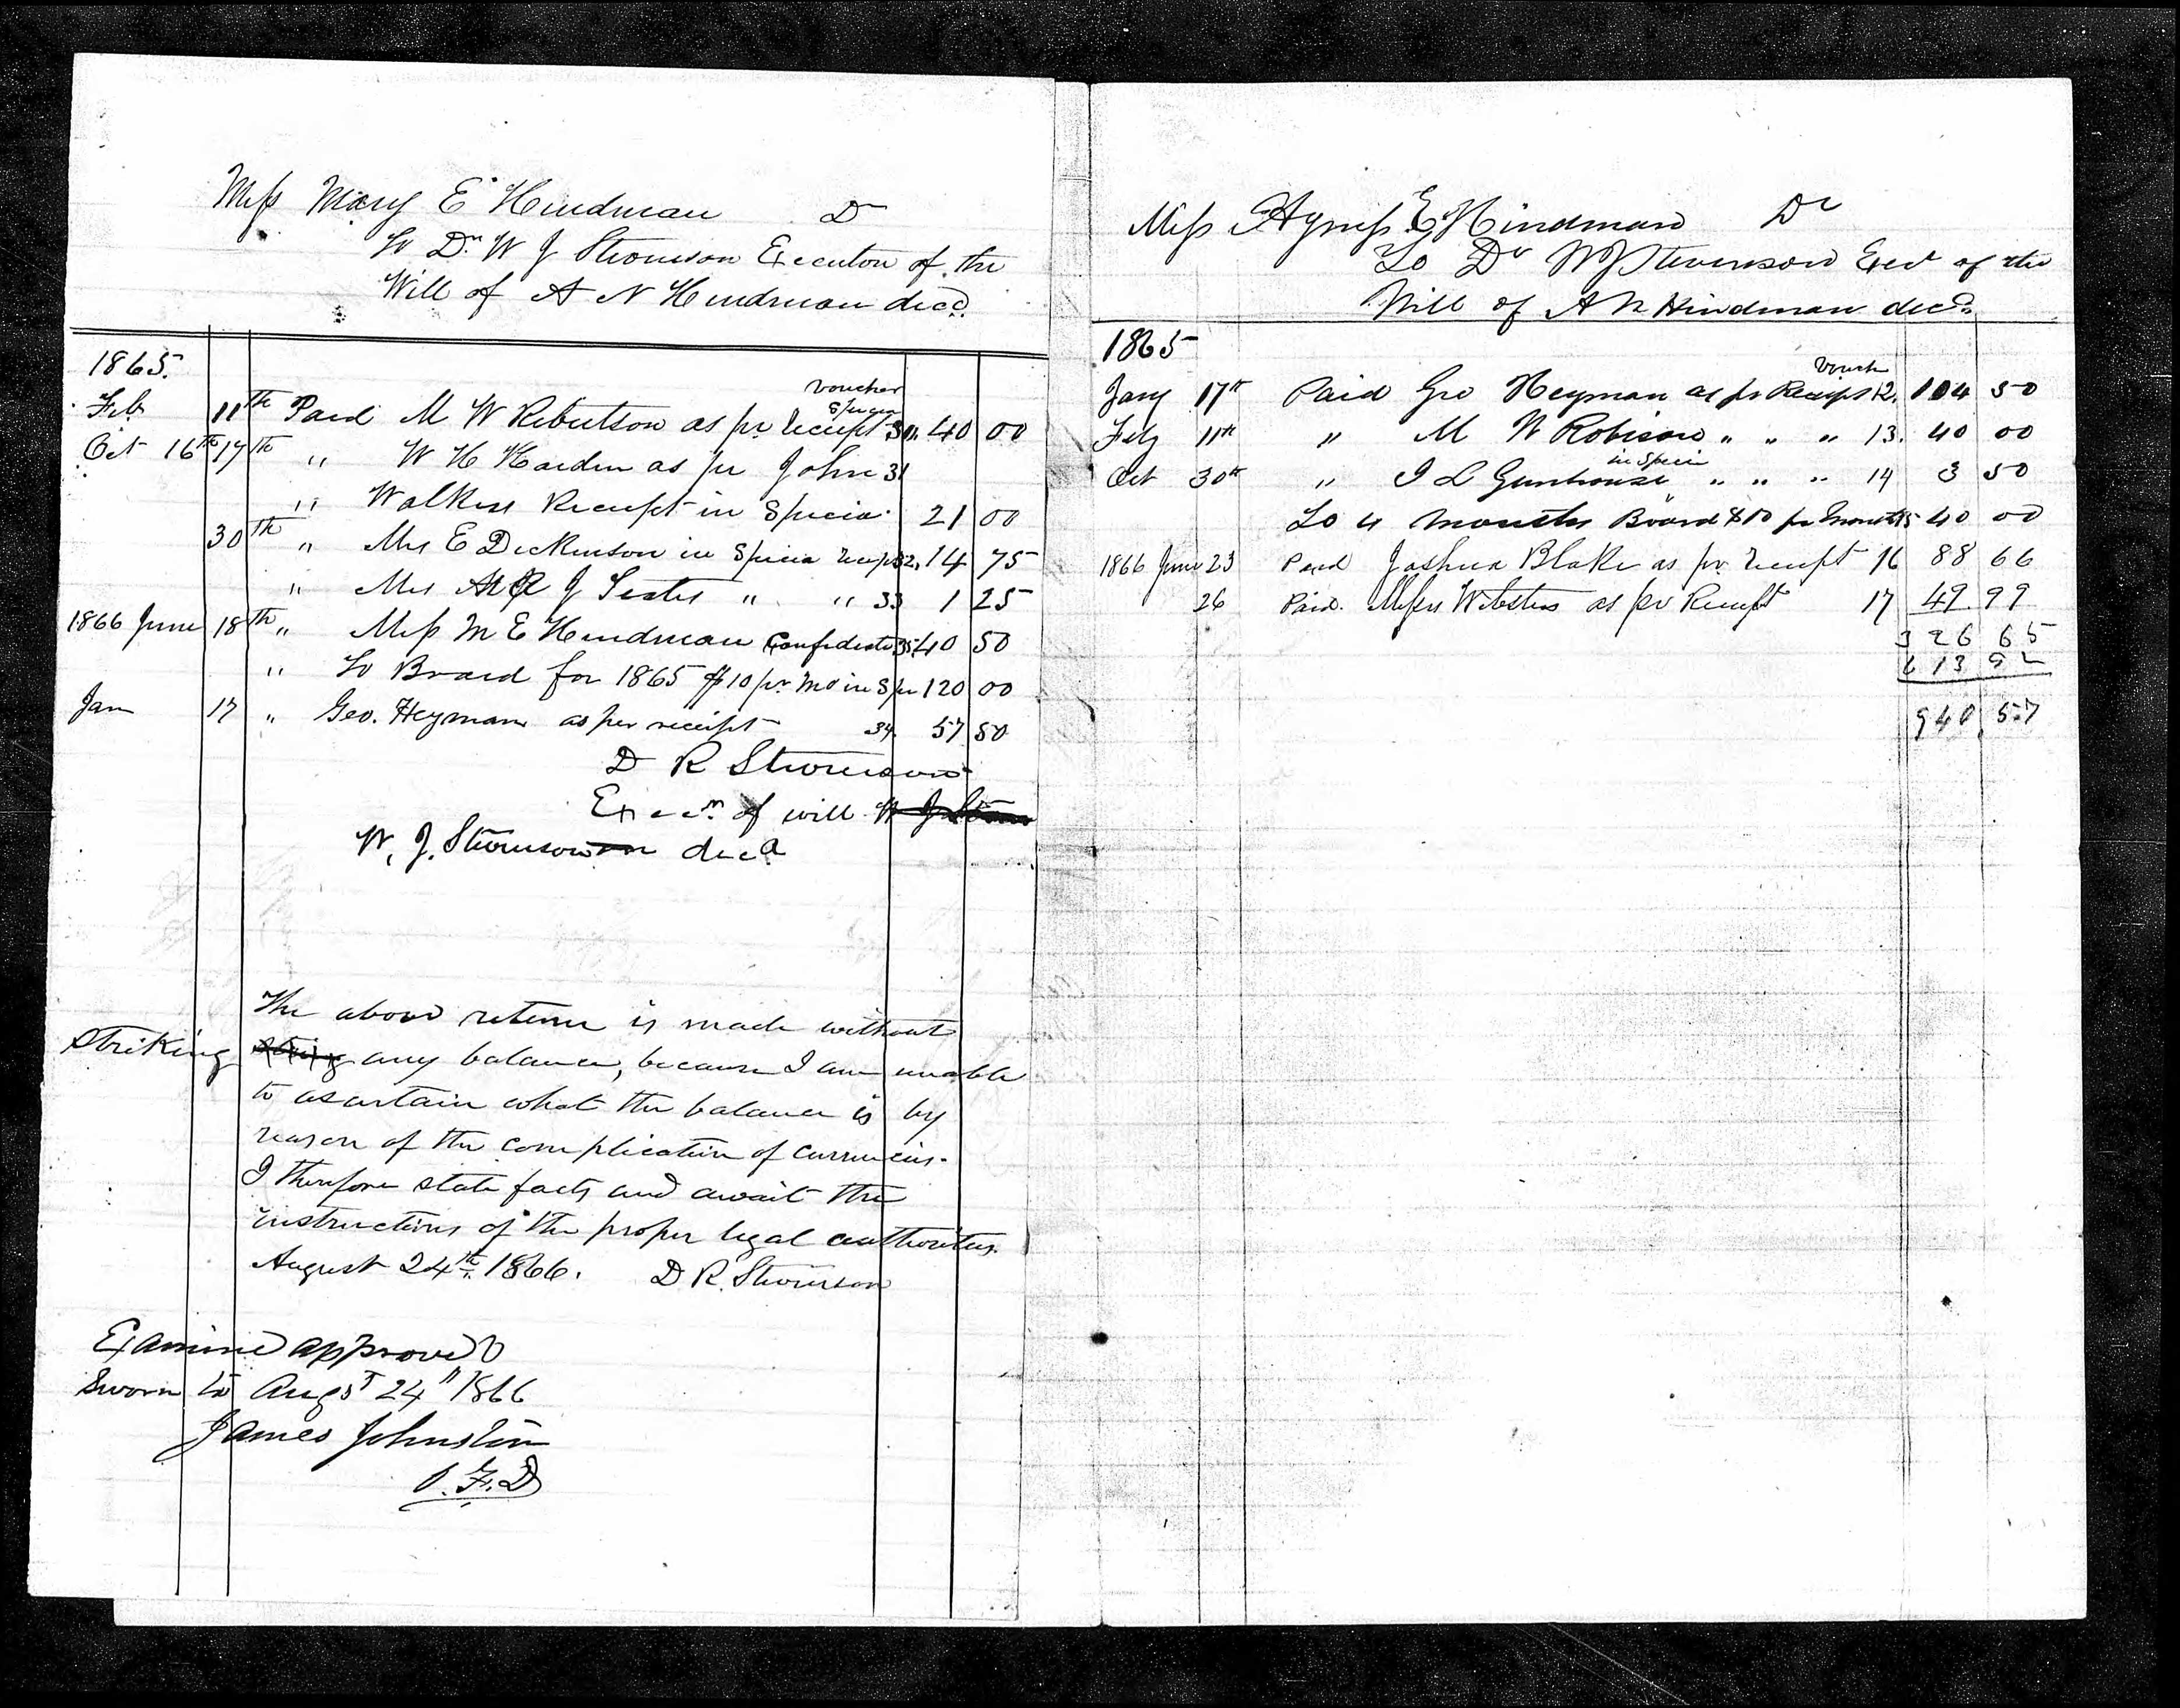 Miss Mary E Hindman Dr
To Dr. W J Stevenson Executor of the
Will of A N Hindman decd.
1865.
voucher
Specia
Feb 11th Paid M W Robertson as pr receipt 30. 40 00
Oct 16th 17th " W H Harden as per John 31
" Walkers Receipt in Specia 21 00
30th " Mrs E Dickinson in Specia receipt 32. 14 75
" Mrs J Teates " " 33 1 25
1866 June 18th " Miss M E Hindman Confederate 35. 40 50
" To Board for 1865 $10 pr. mo in Spe 120 00
Jan 17 " Geo. Heyman as per receipt 34. 57 50
D R Stevenson
Execr. of will
W. J. Stevenson decd
The above return is made without
striking any balance, because I am unable
to ascertain what the balance is by
reason of the complication of currencies.
I therefore state facts and await the
instructions of the proper legal authorities.
August 24th. 1866. D. R. Stevenson
Examined approved
Sworn to Augst 24" 1866
James Johnston
Miss Agness E Hindman Dr
To Dr W J Stevenson Exer of the
Will of A N Hindman decd.
1865
Vouch
Jany 17th Paid Geo Heyman as pr Receipt 12. 104 50
Feby 11th " M W Robison " " " 13. 40 00
in Specia
Oct 30th " I L Gunhouse " " " 14 3 50
To 4 months Board $10 pr month 15 40 00
1866 June 23 Paid Joshua Blake as pr receipt 16 88 66
26 Paid. Messrs Websters as pr Receipt 17 49.99
326 65
613 92
940 57